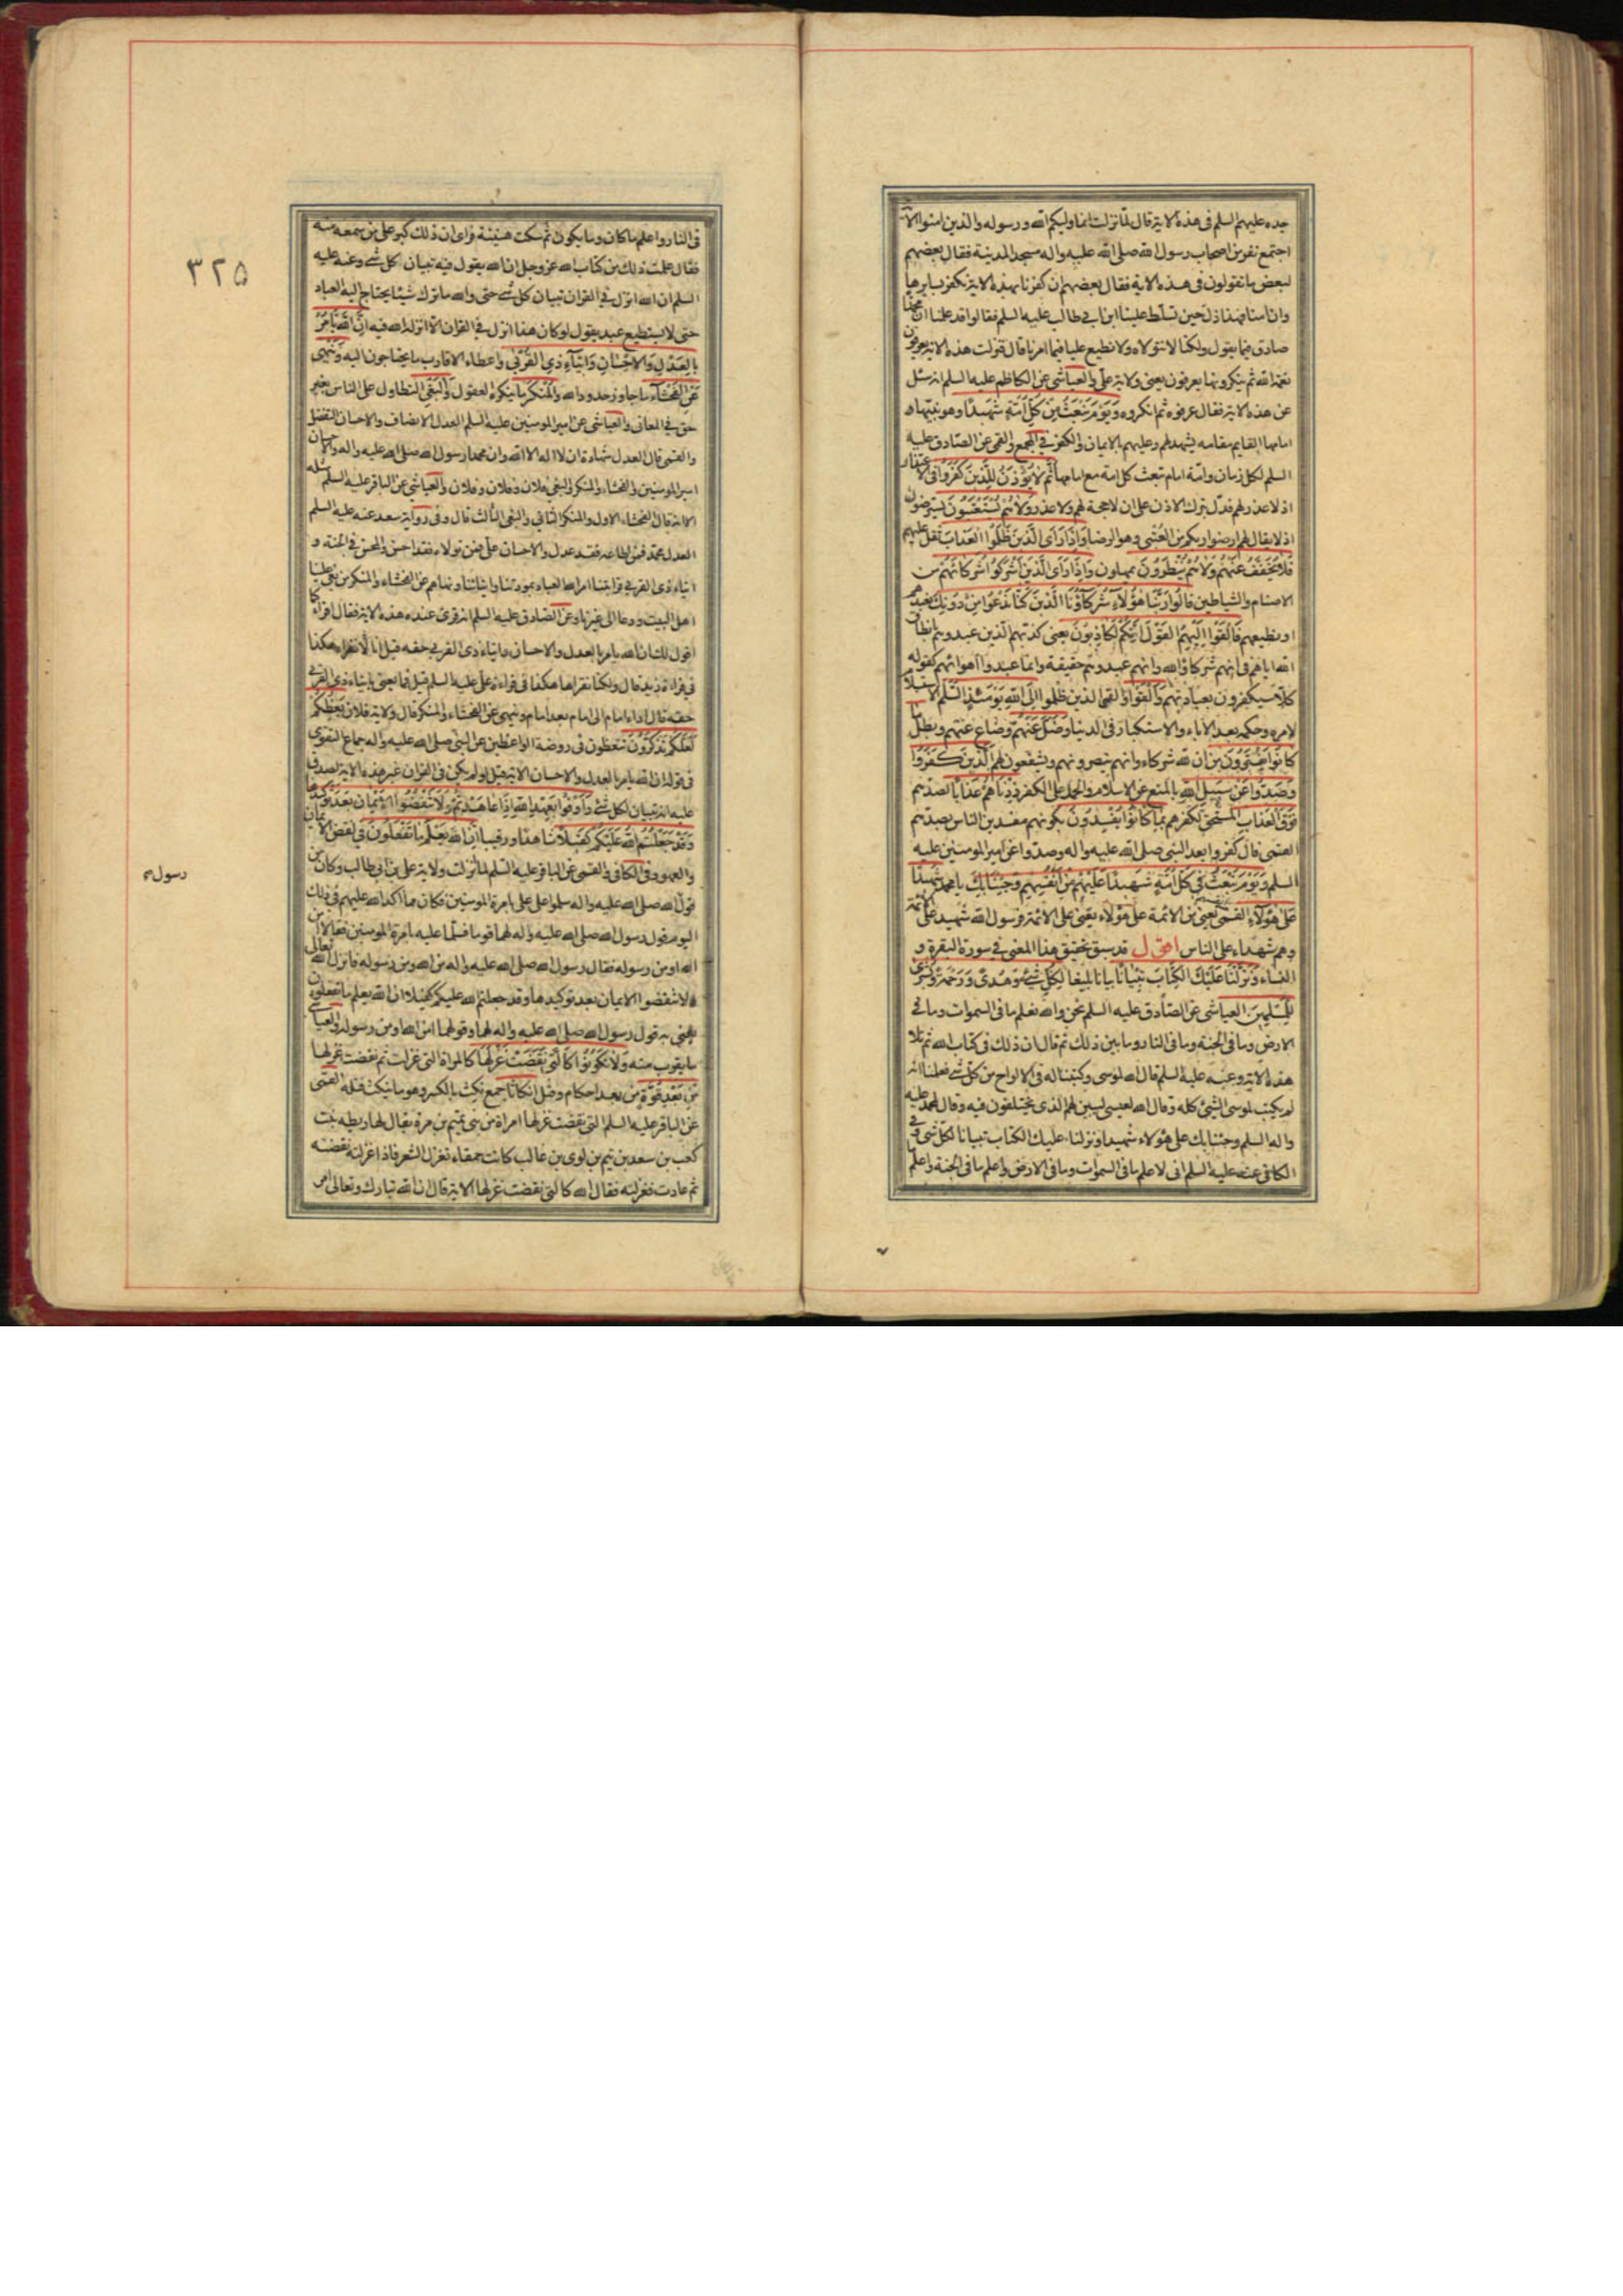 جده عليهم السلم فى هذه الاية قال لما نزلت انما وليكم الله ورسوله والذين امنوا الاية
اجتمع نفر من اصحاب رسول الله صلى الله عليه واله مسجد المدينة فقال بعضهم
لبعض ما تقولون فى هذه الاية فقال بعضهم ان كفرنا بهذه الاية نكفر بسايرها
وان امنا فهذا ذل حين تسلط علينا ابن ابي طالب عليه السلم فقالوا قد علمنا ان محمدا
صادق فيما يقول ولكنا لا نتولاه ولا نطيع عليا فيما امرنا قال فنزلت هذه الاية يعرفون
نعمة الله ثم ينكرونها يعرفون يعنى ولاية على والعياشى عن الكاظم عليه السلم انه سئل
عن هذه الاية فقال عرفوه ثم انكروه وَيَوْمَ نَبْعَثُ مِنْ كُلِّ اُمَّةٍ شَهِيدًا وهو نبيها و
امامها القايم مقامه يشهد لهم وعليهم بالايمان والكفر في المجمع والقمى عن الصادق عليه
السلم لكل زمان وامة امام تبعث كل امة مع امامها ثُمَّ لَا يُؤْذَنُ لِلَّذِينَ كَفَرُوا فى الاعتذار
اذ لا عذر لهم فدل بترك الاذن على ان لا حجة لهم ولا عذر وَلَا هُمْ يُسْتَعْتَبُونَ يسترضون
اذ لا يقال لهم ارضوا ربكم من العتبى وهو الرضا وَاِذَا رَاَى الَّذِينَ ظَلَمُوا الْعَذَابَ ثقل عليهم
فَلَا يُخَفَّفُ عَنْهُمْ وَلَا هُمْ يُنْظَرُونَ يمهلون وَاِذَا رَاَى الَّذِينَ اَشْرَكُوا شُرَكَائَهُمْ من
الاصنام والشياطين قَالُوا رَبَّنَا هٰؤُلَاءِ شُرَكَاؤُنَا الَّذِينَ كُنَّا نَدْعُوا مِنْ دُونِكَ نعبدهم
او نطيعهم فَاَلْقَوْا اِلَيْهِمُ الْقَوْلَ اِنَّكُمْ لَكَاذِبُونَ يعنى كذبهم الذين عبدوهم بانطاق
الله اياهم فى انهم شركاؤ الله وانهم عبدوهم حقيقة وانما عبدوا اهوائهم كقوله
كلا سيكفرون بعبادتهم وَاَلْقَوْا والقى الذين ظلموا اِلَى اللهِ يَوْمَئِذٍ السَّلَمَ الاستسلام
لامره وحكمه بعد الاباء والاستكبار فى الدنيا وَضَلَّ عَنْهُمْ وضاع عنهم وبطل مَا
كَانُوا يَفْتَرُونَ من ان لله شركاء وانهم ينصرونهم ويشفعون لهم اَلَّذِينَ كَفَرُوا
وَصَدُّوا عَنْ سَبِيلِ اللهِ بالمنع عن الاسلام والحمل على الكفر زِدْنَاهُمْ عَذَابًا لصدهم
فَوْقَ الْعَذَابِ المستحق لكفرهم بِمَا كَانُوا يُفْسِدُونَ بكونهم مفسدين الناس بصدهم
القمى قال كفروا بعد النبى صلى الله عليه واله وصدوا عن امير المومنين عليه
السلم وَيَوْمَ نَبْعَثُ فِى كُلِّ اُمَّةٍ شَهِيدًا عَلَيْهِمْ مِنْ اَنْفُسِهِمْ وَجِئْنَا بِكَ يا محمد شَهِيدًا
عَلٰى هٰؤُلَاءِ القمى يعنى من الائمة على هؤلاء يعنى على الائمة فرسول الله شهيد على الائمة
وهم شهداء على الناس اقول قد سبق تحقيق هذا المعنى في سورة البقرة و
النساء وَنَزَّلْنَا عَلَيْكَ الْكِتَابَ تِبْيَانًا بيانا بليغا لِكُلِّ شَىْءٍ وَهُدًى وَرَحْمَةً وَبُشْرٰى
لِلْمُسْلِمِينَ العياشى عن الصادق عليه السلم نحن والله نعلم ما فى السموات وما فى
الارض وما فى الجنة وما فى النار وما بين ذلك ثم قال ان ذلك فى كتاب الله ثم تلا
هذه الاية وعنه عليه السلم قال الله لموسى وكتبنا له فى الالواح من كل شئ فعلمنا انه
لم يكتب لموسى الشئ كله وقال الله لعيسى ليبين لهم الذى يختلفون فيه وقال لمحمد عليه
واله السلم وجئنا بك على هؤلاء شهيدا ونزلنا عليك الكتاب تبيانا لكل شئ وفى
الكافى عنه عليه السلم انى لاعلم ما فى السموات وما فى الارض واعلم ما فى الجنة واعلم
٣٢٥
فى النار واعلم ما كان وما يكون ثم سكت هنيئة فراى ان ذلك كبر على من سمعه منه
فقال علمت ذلك من كتاب الله عز وجل ان الله يقول فيه تبيان كل شئ وعنه عليه
السلم ان الله انزل في القران تبيان كل شئ حتى والله ما ترك شيئا يحتاج اليه العباد
حتى لا يستطيع عبد يقول لو كان هذا انزل في القران الا انزله الله فيه اِنَّ اللهَ يَاْمُرُ
بِالْعَدْلِ وَالْاِحْسَانِ وَاِيتَاءِ ذِى الْقُرْبٰى واعطاء الاقارب ما يحتاجون اليه وَيَنْهٰى
عَنِ الْفَحْشَاءِ ما جاوز حدود الله وَالْمُنْكَرِ ما ينكره العقول وَالْبَغْىِ التطاول على الناس بغير
حق في المعانى والعياشى عن امير المومنين عليه السلم العدل الانصاف والاحسان التفضل
والقمى قال العدل شهادة ان لا اله الا الله وان محمدا رسول الله صلى الله عليه واله والاحسان
امير المومنين والفحشاء والمنكر والبغى فلان وفلان وفلان والعياشى عن الباقر عليه السلم مثله
الا انه قال الفحشاء الاول والمنكر الثانى والبغى الثالث قال وفى رواية سعد عنه عليه السلم
العدل محمد فمن اطاعه فقد عدل والاحسان على فمن تولاه فقد احسن والمحسن في الجنة و
ايتاء ذى القربى قرابتنا امر الله العباد بمودتنا وايتائنا ونهاهم عن الفحشاء والمنكر من بغى علينا
اهل البيت ودعا الى غيرنا وعن الصادق عليه السلم انه قرئ عنده هذه الاية فقال اقرءوا كما
اقول لك ان الله يامر بالعدل والاحسان وايتاء ذى القربى حقه قيل انا لا نقراء هكذا
في قراءة زيد قال ولكنا نقراها هكذا فى قراءة على عليه السلم قيل فما يعنى بايتاء ذى القربى
حقه قال اداء امام الى امام بعد امام وينهى عن الفحشاء والمنكر قال ولاية فلان يَعِظُكُمْ
لَعَلَّكُمْ تَذَكَّرُونَ تتعظون فى روضة الواعظين عن النبى صلى الله عليه واله جماع التقوى
فى قوله ان الله يامر بالعدل والاحسان الاية قيل لو لم يكن فى القران غير هذه الاية لصدق
عليه انه تبيان لكل شئ وَاَوْفُوا بِعَهْدِ اللهِ اِذَا عَاهَدْتُمْ وَلَا تَنْقُضُوا الْاَيْمَانَ بَعْدَ تَوْكِيدِهَا
وَقَدْ جَعَلْتُمُ اللهَ عَلَيْكُمْ كَفِيلًا شاهدا ورقيبا اِنَّ اللهَ يَعْلَمُ مَا تَفْعَلُونَ في نقض الايمان
والعهود وفى الكافى والقمى عن الباقر عليه السلم لما نزلت ولاية على بن ابى طالب وكان من
قول الله صلى الله عليه واله سلموا على على بامرة المومنين فكان مما اكد الله عليهم في ذلك
رسول
اليوم قول رسول الله صلى الله عليه واله لهما قوما فسلما عليه بامرة المومنين فقالا امن
الله او من رسوله فقال رسول الله صلى الله عليه واله من الله ومن رسوله فانزل الله تعالى
ولا تنقضوا الايمان بعد توكيدها وقد جعلتم الله عليكم كفيلا ان الله يعلم ما تفعلون
يعنى به قول رسول الله صلى الله عليه واله لهما وقولهما امن الله او من رسوله والعياشى
ما يقرب منه وَلَا تَكُونُوا كَالَّتِى نَقَضَتْ غَزْلَهَا كالمراة التى غزلت ثم نقضت غزلها
مِنْ بَعْدِ قُوَّةٍ من بعد احكام وفتل اَنْكَاثًا جمع نكث بالكسر وهو ما ينكث فتله القمى
عن الباقر عليه السلم التى نقضت غزلها امراة من بنى تميم بن مرة يقال لها ريطه بنت
كعب بن سعد بن تيم بن لوى بن غالب كانت حمقاء تغزل الشعر فاذا غزلته نقضته
ثم عادت فغزلته فقال الله كالتى نقضت غزلها الاية قال ان الله تبارك وتعالى امر